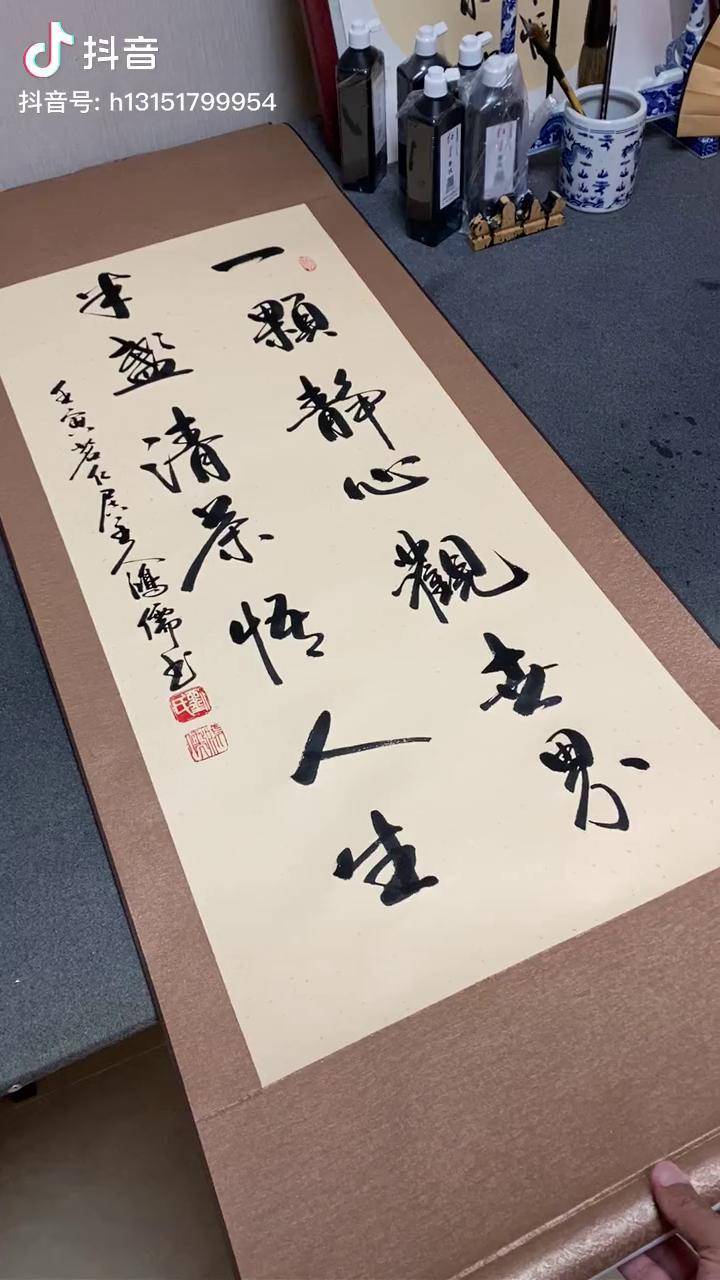 抖音
抖音号: h13151799954
一顆静心觀世界
半盞清茶悟人生
壬寅若仁居主人鴻儒书
劉氏